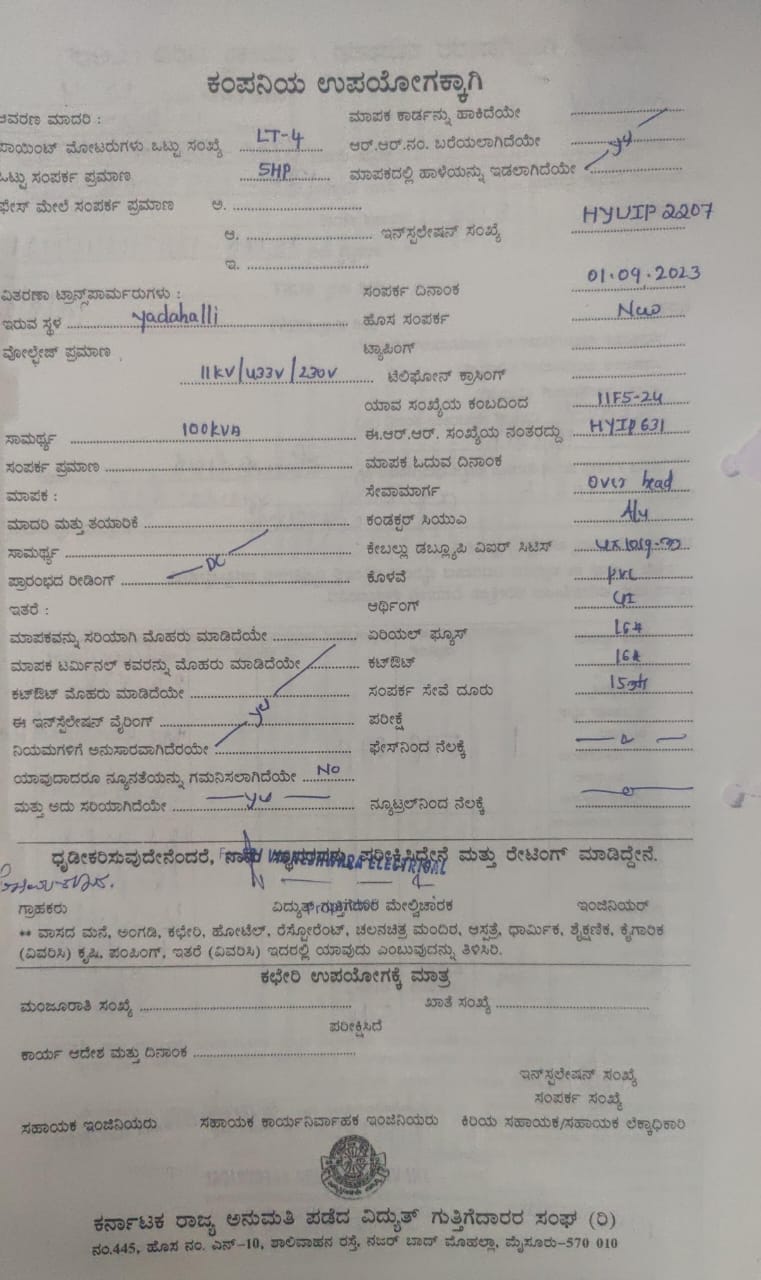 ಕಂಪನಿಯ ಉಪಯೋಗಕ್ಕಾಗಿ
ಆವರಣ ಮಾದರಿ : ಮಾಪಕ ಕಾರ್ಡನ್ನು ಹಾಕಿದೆಯೇ
ಪಾಯಿಂಟ್ ಮೋಟರುಗಳು ಒಟ್ಟು ಸಂಖ್ಯೆ LT-4 ಆರ್.ಆರ್.ನಂ. ಬರೆಯಲಾಗಿದೆಯೇ
ಒಟ್ಟು ಸಂಪರ್ಕ ಪ್ರಮಾಣ 5HP ಮಾಪಕದಲ್ಲಿ ಹಾಳೆಯನ್ನು ಇಡಲಾಗಿದೆಯೇ
ಫೇಸ್ ಮೇಲೆ ಸಂಪರ್ಕ ಪ್ರಮಾಣ ಅ.
ಆ. ಇನ್‌ಸ್ಟಲೇಷನ್ ಸಂಖ್ಯೆ HYUIP 2207
ಇ.
ವಿತರಣಾ ಟ್ರಾನ್ಸ್‌ಫಾರ್ಮರುಗಳು : ಸಂಪರ್ಕ ದಿನಾಂಕ 01.09.2023
ಇರುವ ಸ್ಥಳ Yadahalli ಹೊಸ ಸಂಪರ್ಕ New
ವೋಲ್ಟೇಜ್ ಪ್ರಮಾಣ ಟ್ಯಾಪಿಂಗ್
11KV/433V/230V ಟೆಲಿಫೋನ್ ಕ್ರಾಸಿಂಗ್
ಯಾವ ಸಂಖ್ಯೆಯ ಕಂಬದಿಂದ 11F5-24
ಸಾಮರ್ಥ್ಯ 100KVA ಈ.ಆರ್.ಆರ್. ಸಂಖ್ಯೆಯ ನಂತರದ್ದು HYIP631
ಸಂಪರ್ಕ ಪ್ರಮಾಣ ಮಾಪಕ ಓದುವ ದಿನಾಂಕ
ಮಾಪಕ : ಸೇವಾಮಾರ್ಗ Over head
ಮಾದರಿ ಮತ್ತು ತಯಾರಿಕೆ ಕಂಡಕ್ಟರ್ ಸಿಯುಎ Aly
ಸಾಮರ್ಥ್ಯ ಕೇಬಲ್ಲು ಡಬ್ಲ್ಯೂಪಿ ವಿಐರ್ ಸಿಟಿಸ್
ಪ್ರಾರಂಭದ ರೀಡಿಂಗ್ DC ಕೊಳವೆ PVC
ಇತರೆ : ಆರ್ಥಿಂಗ್ GI
ಮಾಪಕವನ್ನು ಸರಿಯಾಗಿ ಮೊಹರು ಮಾಡಿದೆಯೇ ಏರಿಯಲ್ ಫ್ಯೂಸ್ 16A
ಮಾಪಕ ಟರ್ಮಿನಲ್ ಕವರನ್ನು ಮೊಹರು ಮಾಡಿದೆಯೇ ಕಟ್‌ಔಟ್ 16A
ಕಟ್‌ಔಟ್ ಮೊಹರು ಮಾಡಿದೆಯೇ ಸಂಪರ್ಕ ಸೇವೆ ದೂರು 15mtr
ಈ ಇನ್‌ಸ್ಟೆಲೇಷನ್ ವೈರಿಂಗ್ ಪರೀಕ್ಷೆ
ನಿಯಮಗಳಿಗೆ ಅನುಸಾರವಾಗಿದೆರಯೇ ಫೇಸ್‌ನಿಂದ ನೆಲಕ್ಕೆ
ಯಾವುದಾದರೂ ನ್ಯೂನತೆಯನ್ನು ಗಮನಿಸಲಾಗಿದೆಯೇ No
ಮತ್ತು ಅದು ಸರಿಯಾಗಿದೆಯೇ ನ್ಯೂಟ್ರಲ್‌ನಿಂದ ನೆಲಕ್ಕೆ
ಧೃಡೀಕರಿಸುವುದೇನೆಂದರೆ, ನಾನು ಸ್ಥಾವರವನ್ನು ಪರೀಕ್ಷಿಸಿದ್ದೇನೆ ಮತ್ತು ರೇಟಿಂಗ್ ಮಾಡಿದ್ದೇನೆ.
ELECTRICAL
ಗ್ರಾಹಕರು ವಿದ್ಯುತ್ ಗುತ್ತಿಗೆದಾರ ಮೇಲ್ವಿಚಾರಕ ಇಂಜಿನಿಯರ್
** ವಾಸದ ಮನೆ, ಅಂಗಡಿ, ಕಛೇರಿ, ಹೋಟೆಲ್, ರೆಸ್ಟೋರೆಂಟ್, ಚಲನಚಿತ್ರ ಮಂದಿರ, ಆಸ್ಪತ್ರೆ, ಧಾರ್ಮಿಕ, ಶೈಕ್ಷಣಿಕ, ಕೈಗಾರಿಕ
(ವಿವರಿಸಿ) ಕೃಷಿ, ಪಂಪಿಂಗ್, ಇತರೆ (ವಿವರಿಸಿ) ಇದರಲ್ಲಿ ಯಾವುದು ಎಂಬುವುದನ್ನು ತಿಳಿಸಿರಿ.
ಕಛೇರಿ ಉಪಯೋಗಕ್ಕೆ ಮಾತ್ರ
ಮಂಜೂರಾತಿ ಸಂಖ್ಯೆ ಖಾತೆ ಸಂಖ್ಯೆ
ಪರೀಕ್ಷಿಸಿದೆ
ಕಾರ್ಯ ಆದೇಶ ಮತ್ತು ದಿನಾಂಕ
ಇನ್‌ಸ್ಟಲೇಷನ್ ಸಂಖ್ಯೆ
ಸಂಪರ್ಕ ಸಂಖ್ಯೆ
ಸಹಾಯಕ ಇಂಜಿನಿಯರು ಸಹಾಯಕ ಕಾರ್ಯನಿರ್ವಾಹಕ ಇಂಜಿನಿಯರು ಕಿರಿಯ ಸಹಾಯಕ/ಸಹಾಯಕ ಲೆಕ್ಕಾಧಿಕಾರಿ
ಕರ್ನಾಟಕ ರಾಜ್ಯ ಅನುಮತಿ ಪಡೆದ ವಿದ್ಯುತ್ ಗುತ್ತಿಗೆದಾರರ ಸಂಘ (ರಿ)
ನಂ.445, ಹೊಸ ನಂ. ಎನ್-10, ಶಾಲಿವಾಹನ ರಸ್ತೆ, ನಜರ್ ಬಾದ್ ಮೊಹಲ್ಲಾ, ಮೈಸೂರು-570 010